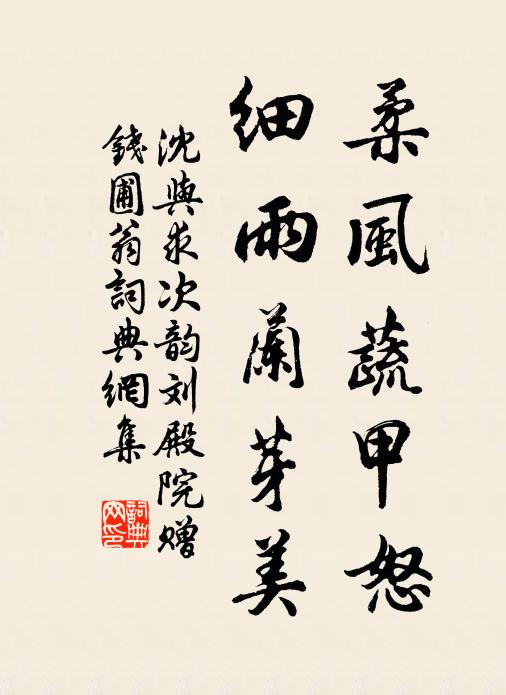 柔風蔬甲怒
細雨蘭芽美
沈與求次韵刘殿院赠
錢圃翁詞典網集
詞典网印